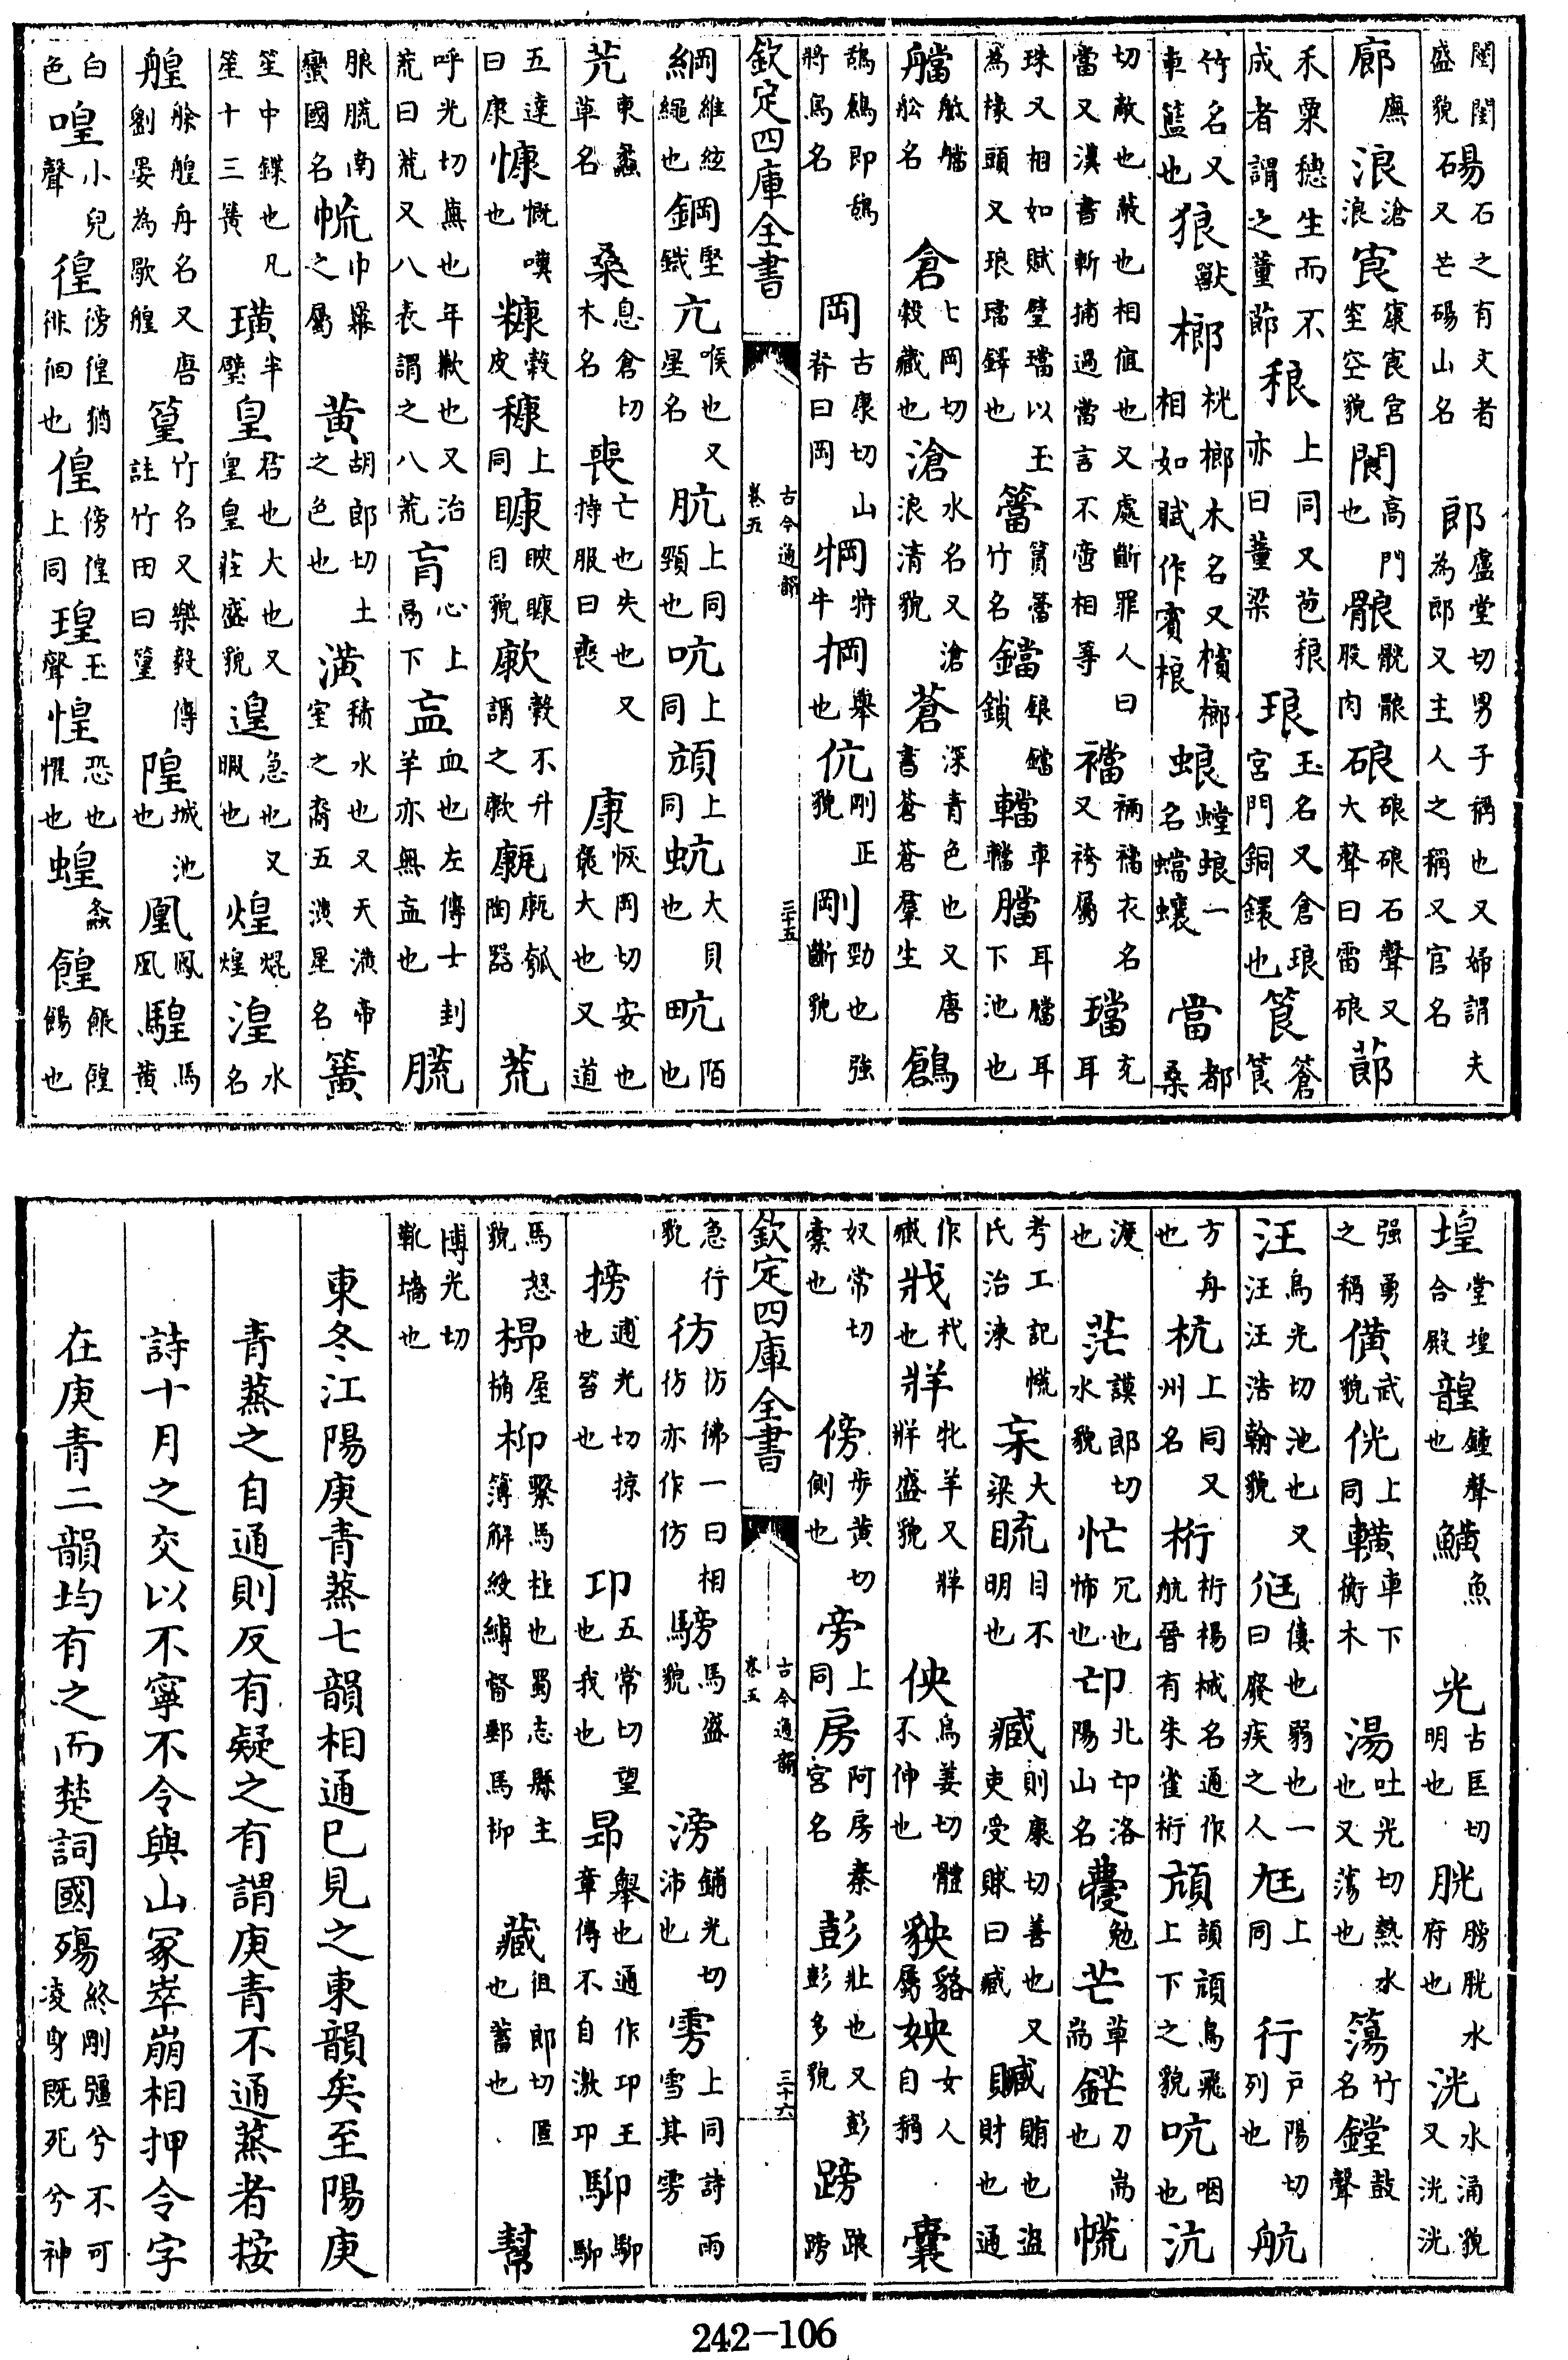 閶閶盛貌 碭石之有文者又芒碭山名 郎盧堂切男子稱也又婦謂夫為郎又主人之稱又官名
廊廡 浪滄浪 㝗康㝗宮室空貌 閬高門也 䯖髖䯖股肉 硠硠硠石聲又大聲曰雷硠 蓈
禾粟穗生而不成者謂之董蓈 稂上同又苞稂亦曰董梁 琅玉名又倉琅宮門銅鐶也 筤蒼筤
竹名又車籃也 狼獸 榔桄榔木名又檳榔相如賦作賓桹 蜋螳蜋一名蟷蠰 當都桑
切敵也蔽也相值也又處斷罪人曰當又漢書斬捕過當言不啻相等 襠裲襠衣名又袴屬 璫充耳
珠又相如賦璧璫以玉為椽頭又琅璫鐸也 簹篔簹竹名 鐺鋃鐺鎖 轠車轠 膅耳膅耳下池也
艡䑠艡舩名 倉七岡切穀藏也 滄水名又滄浪清貌 蒼深青色也又唐書蒼蒼羣生 鶬
鴰鶬即鴰將烏名 岡古康切山脊曰岡 犅特牛 掆舉也 伉剛正貌 剛勁也強斷貌
欽定四庫全書 古今通韻 卷五 三十五
綱維紘繩也 鋼堅鐵 亢喉也又星名 肮上同頸也 吭上同 頏上同 蚢大貝也 畖陌也
芫東蠡草名 桑息倉切木名 喪亡也失也又持服曰喪 康恢岡切安也㲋大也又道
五達曰康 慷慨嘆也 糠穀皮 穅上同 䁱䀮䁱目貌 歉穀不升謂之歉 㼹㼹瓠陶器 荒
呼光切蕪也年歉也又治荒曰荒又八表謂之八荒 肓心上鬲下 衁血也左傳士刲羊亦無衁也 䐠
䏡䐠南蠻國名 㡆巾羃之屬 黃胡郎切土之色也 潢積水也又天潢帝室之裔五潢星名 簧
笙中鍱也凡笙十三簧 璜半璧 皇君也大也又皇皇莊盛貌 遑急也又暇也 煌焜煌 湟水名
艎艅艎舟名又唐劉晏為歇艎 篁竹名又樂毅傳註竹田曰篁 隍城池也 凰鳳凰 騜馬黃
白色 喤小兒聲 徨傍徨猶徘徊也 偟傍偟上同 瑝玉聲 惶恐也懼也 蝗螽 餭餦餭餳也
堭堂堭合殿 韹鐘聲也 鱑魚 光古匡切明也 胱膀胱水府也 洸水涌貌又洸洸
强勇之稱 僙武貌 侊上同 䡽車下衡木 湯吐光切熱水也又蕩也 簜竹名 鏜鼓聲
汪烏光切池也又汪汪浩翰貌 尫僂也弱也一曰廢疾之人 尪上同 行戶陽切列也 航
方舟也 杭上同又州名 桁桁楊械名通作航晉有朱雀桁 頏頡頏鳥飛上下之貌 吭咽也 沆
渡也 茫謨郎切水貌 忙冗也怖也 邙北邙洛陽山名 㝑勉 芒草耑 鋩刀耑也 㡃
考工記㡃氏治涑 杗大梁 䀮目不明也 臧則康切善也又吏受賕曰臧 贓賄也盜財也通
作臧 戕杙也 牂牝羊又牂牂盛貌 佒烏姜切體不伸也 䝟貉屬 姎女人自稱 囊
奴常切橐也 傍步黃切側也 旁上同 房阿房秦宮名 彭壯也又彭彭多貌 䠙踉䠙
欽定四庫全書 古今通韻 卷五 三十六
急行貌 彷彷彿一曰相彷亦作仿 騯馬盛貌 滂鋪光切沛也 雱上同詩雨雪其雱
搒逋光切掠也笞也 卬五常切望也我也 昂舉也通作卬王章傳不自激卬 䭹䭹䭹
馬怒貌 枊屋桷 枊繫馬柱也蜀志縣主簿解綬縛督郵馬枊 藏徂郎切匿也蓄也 幫
博光切䩠墧也
東冬江陽庚青蒸七韻相通巳見之東韻矣至陽庚
青蒸之自通則反有疑之有謂庚青不通蒸者按
詩十月之交以不寧不令與山冢崒崩相押令字
在庚青二韻均有之而楚詞國殤終剛彊兮不可凌身既死兮神
242-106